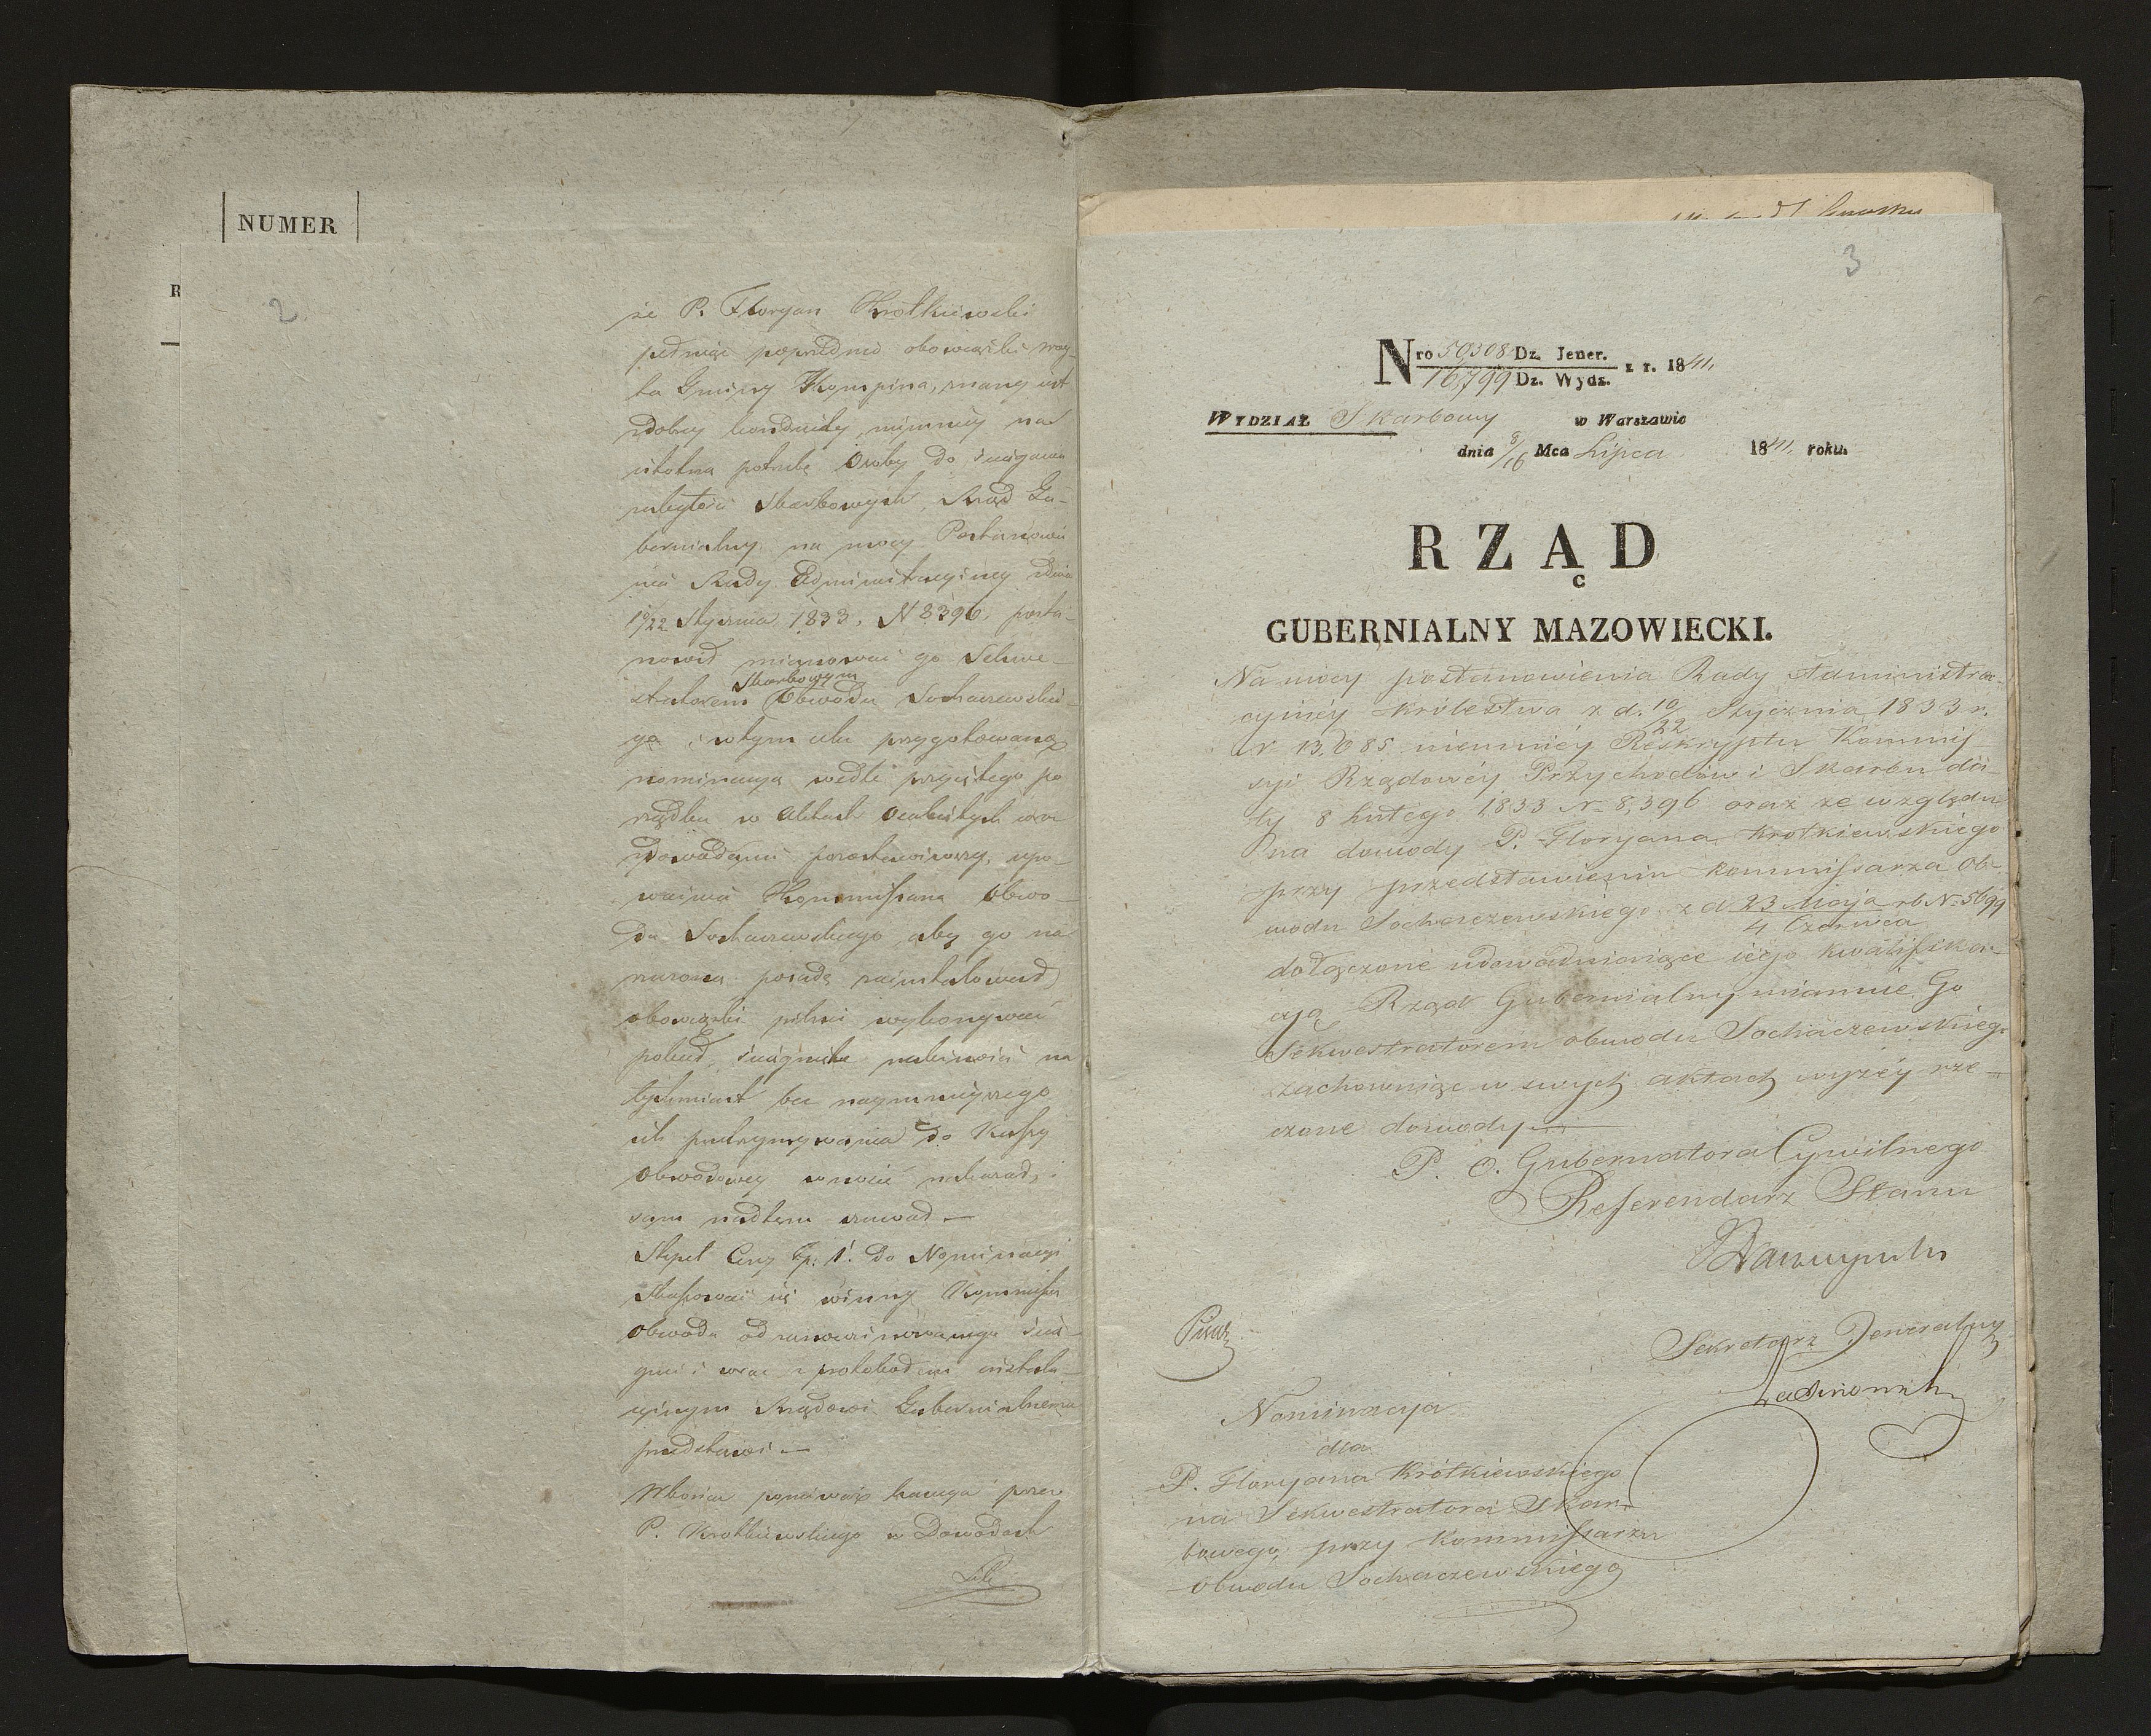 NUMER
R
2
że P. Floryan Krótkiewski
pełniąc poprzednio obowiązki woy-
ta Gminy Kompina, znany jest
z dobrey konduity, niemniey na
istotną potrzebę Osoby do ściągania
zaległości Skarbowych, Rząd Gu-
bernialny na mocy Postanowie
nia Rady Administracyiney z dnia
10/22 Stycznia 1833, N 8396, posta-
nowił mianować go Sekwe-
Skarbowym
stratorem Obwodu Sochaczewskie-
go i w tym celu przygotowaną
nominacyą wedle przyjętego po
rządku w Aktach Osobistych wraz
z dowodami pozostawiwszy, upo-
ważnia Kommissarza Obwo-
du Sochaczewskiego, aby go na
posadę zainstalował
obowiązki pilnie wykonywać
polecił, ściągnięte należności na
tychmiast bez naymnieyszego
ich przetrzymywania do Kassy
Obwodowey wnosić nakazał, i
sam nad tem czuwał —
Stępel Ceny Zp: 1. do Nominacyi
Stosować się winny Kommissarz
Obwodu od zanominowanego ścią-
gnie i wraz z protokołem instala-
cyinym Rządowi Gubernialnemu
przedstawi —
W końcu ponieważ kaucya przez
P. Krótkiewskiego w Dowodach
3
Nro 50308 Dz. Jener.
16,799 Dz. Wydz. z r. 1841.
WYDZIAŁ Skarbowy w Warszawie
dnia 8/16 Mca Lipca 1841 roku.
RZĄD
GUBERNIALNY MAZOWIECKI.
Na mocy postanowienia Rady Administra-
cyinéy Królestwa z d. 10/22 Stycznia 1833 r.
N. 13,685 niemniéy Reskryptu Kommis-
syi Rządowéy Przychodów i Skarbu da
ty 8 Lutego 1833 N. 8,396 oraz ze względu
na dowody P. Floryana Krótkiewskiego
przy przedstawieniu Kommissarza Ob-
wodu Sochaczewskiego z d 23 Maja / 4 Czerwca rb N. 5699
dołączone udowadniaiące iego kwalifika-
cyą Rząd Gubernialny mianuie Go
Sekwestratorem obwodu Sochaczewskieg.
zachowuiąc w swych aktach wyżéy rze-
czone dowody.
P. O. Gubernatora Cywilnego
Referendarz Stanu
Pisarz
Sekretarz Jeneralny
Nominacya
dla
P. Floryana Krótkiewskiego
na Sekwestratora Skar-
bowego przy Kommissarzu
obwodu Sochaczewskiego